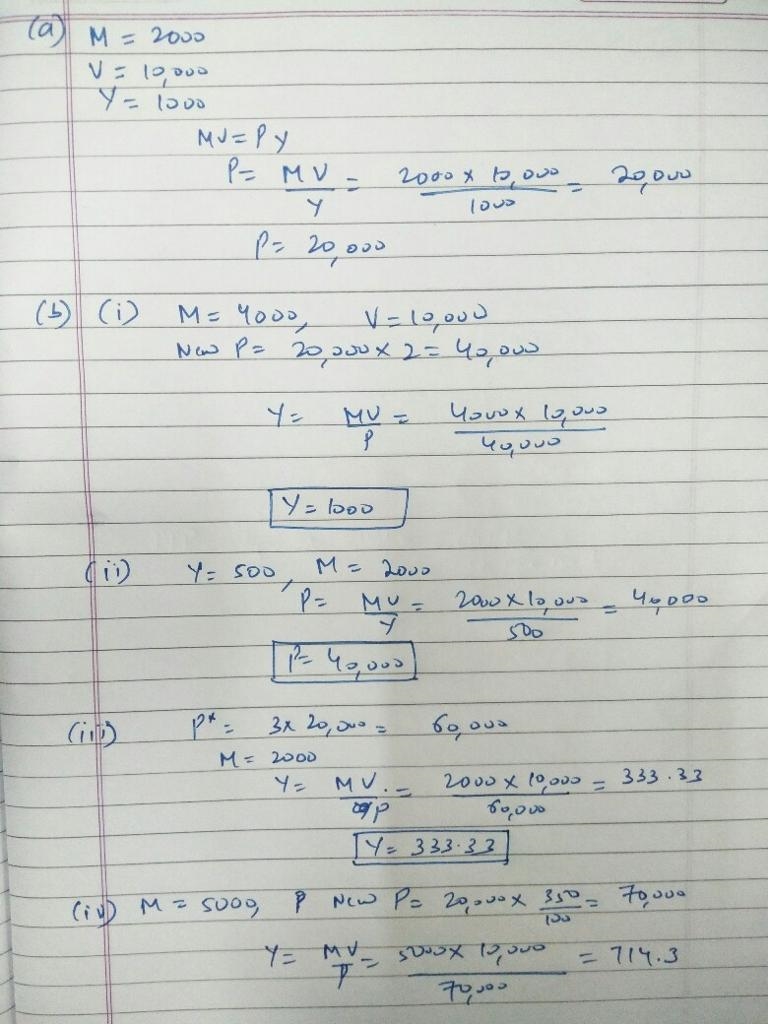 (a) M = 2000
V = 10,000
Y = 1000
MV = PY
P = MV/Y = 2000 × 10,000/1000 = 20,000
P = 20,000
(b) (i) M = 4000, V = 10,000
New P = 20,000 × 2 = 40,000
Y = MV/P = 4000 × 10,000/40,000
Y = 1000
(ii) Y = 500, M = 2000
P = MV/Y = 2000 × 10,000/500 = 40,000
P = 40,000
(iii) P* = 3 × 20,000 = 60,000
M = 2000
Y = MV/P = 2000 × 10,000/60,000 = 333.33
Y = 333.33
(iv) M = 5000, P New P = 20,000 × 350/100 = 70,000
Y = MV/P = 5000 × 10,000/70,000 = 714.3